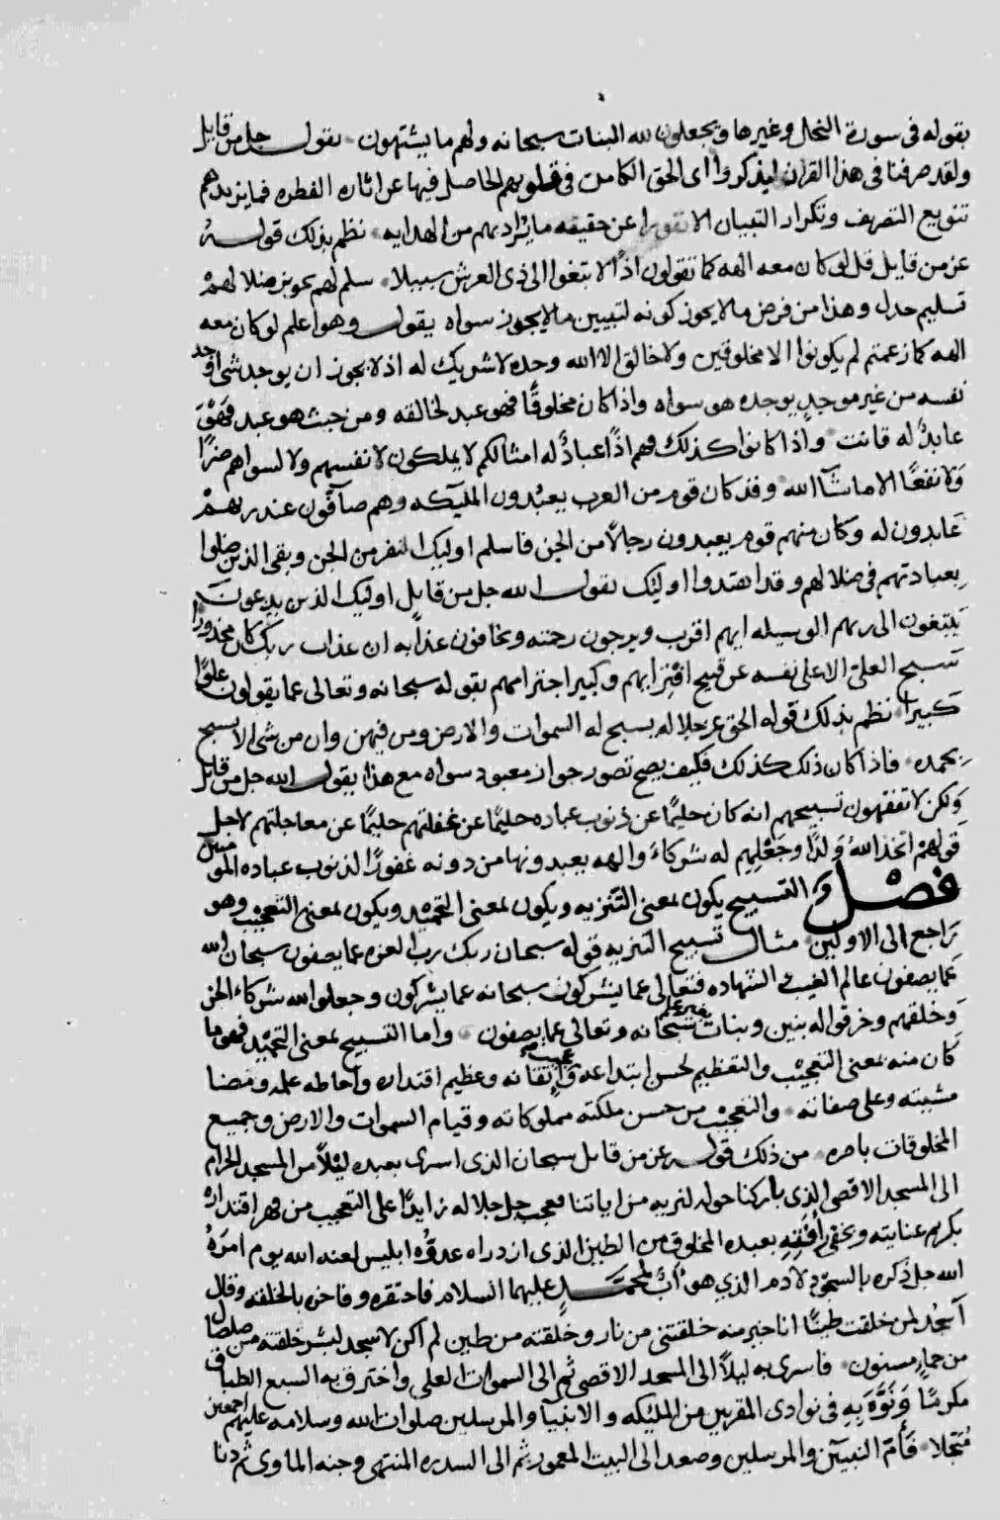 بقوله فى سورة النحل وغيرها ويجعلون لله البنات سبحانه ولهم ما يشتهون يقول جل من قايل
ولقد صرفنا فى هذا القران ليذكروا اى الحق الكامن فى قلوبهم الحاصل فيها عن اثاره الفطره فما يزيدهم
تنويع التصريف وتكرار التبيان الا نفورا عن حقيقه ما يراد بهم من الهدايه نظم بذلك قوله
عز من قايل قل لو كان معه الهه كما تقولون اذا لابتغوا الى ذى العرش سبيلا سلم لهم
تسليم جدل وهذا من فرض ما لا يجوز كونه لتبيين ما لا يجوز سواه يقول وهو اعلم لو كان معه
الهه كما زعمتم لم يكونوا الا مخلوقين ولا خالق الا الله وحده لا شريك له اذ لا يجوز ان يوجد شى او جد
نفسه من غير موجد يوجده هو سواه واذا كان مخلوقًا فهو عبد لخالقه ومن حيث هو عبد فهو
عابد له قانت واذا كانوا كذلك فهم اذًا عبادٌ له امثالكم لا يملكون لانفسهم ولا لسواهم ضرًا
ولا نفعًا الا ما شآ الله وقد كان قوم من العرب يعبدون المليكه وهم صآفون عند ربهم
عابدون له وكان منهم قوم يعبدون رجالًا من الجن فاسلم اوليك النفر من الجن وبقى الذين ضلوا
بعبادتهم فى ضلالهم وقد اهتدوا اوليك يقول الله جل من قايل اوليك الذين يدعون
يبتغون الى ربهم الوسيله ايهم اقرب ويرجون رحمته ويخافون عذابه ان عذاب ربك كان محذورا
تسبيح العلى الاعلى نفسه عن قبيح افترايهم وكبير اجترامهم بقوله سبحانه وتعالى عما يقولون علوًا
كبيرا نظم بذلك قوله الحق عز جلاله يسبح له السموات والارض ومن فيهن وان من شى الا يسبح
بحمده فاذا كان ذلك كذلك فكيف يصح تصور جواز معبود سواه مع هذا يقول الله جل من قايل
ولكن لا تفقهون تسبيحهم انه كان حليمًا عن ذنوب عباده حليمًا عن غفلتهم حليمًا عن معاجلتهم لاجل
قولهم اتخذ الله ولدًا وجعلهم له شركاء والهه يعبدونها من دونه غفورًا لذنوب عباده المومنين
فصل والتسبيح يكون بمعنى التنزيه ويكون بمعنى التحميد ويكون بمعنى التعجيب وهو
راجع الى الاولين مثال تسبيح التنزيه قوله سبحان ربك رب العزه عما يصفون سبحان الله
عما يصفون عالم الغيب والشهاده فتعالى عما يشركون سبحانه عما يشركون وجعلوا لله شركاء الجن
وخلقهم وخرقوا له بنين وبنات بغير علم سبحانه وتعالى عما يصفون واما التسبيح بمعنى التحميد فهو ما
كان منه بمعنى التعجيب والتعظيم لحسن ابتداعه واتقانه وعظيم اقتداره واحاطه علمه ومضا
مشيته وعلى صفاته والتعجيب من حسن ملكته مملوكاته وقيام السموات والارض وجميع
المخلوقات بامره من ذلك قوله عز من قايل سبحان الذى اسرى بعبده ليلًا من المسجد الحرام
الى المسجد الاقصى الذى باركنا حوله لنريه من اياتنا فعجب جل جلاله زايدًا على التعجيب من قهر اقتداره
بكريم عنايته وخفى رأفته بعبده المخلوق من الطين الذى ازدراه عدوه ابليس لعنه الله يوم امره
الله جل ذكره بالسجود لادم الذي هو اب لمحمد عليهما السلام فاحتقره وفاخره بالخلقه وقال
آسجد لمن خلقت طينًا انا خير منه خلقتنى من نار وخلقته من طين لم اكن لاسجد لبشر خلقته من صلصال
من حمإ مسنون فاسرى به ليلًا الى المسجد الاقصى ثم الى السموات العلى واخترق به السبع الطباق
مكرمًا ونوه به فى نوادى المقربين من المليكه والانبيآ والمرسلين صلوات الله وسلامه عليهم اجمعين
فأم النبيين والمرسلين وصعد الى البيت المعمور ثم الى السدره المنتهى وجنه الماوى ثم دنا